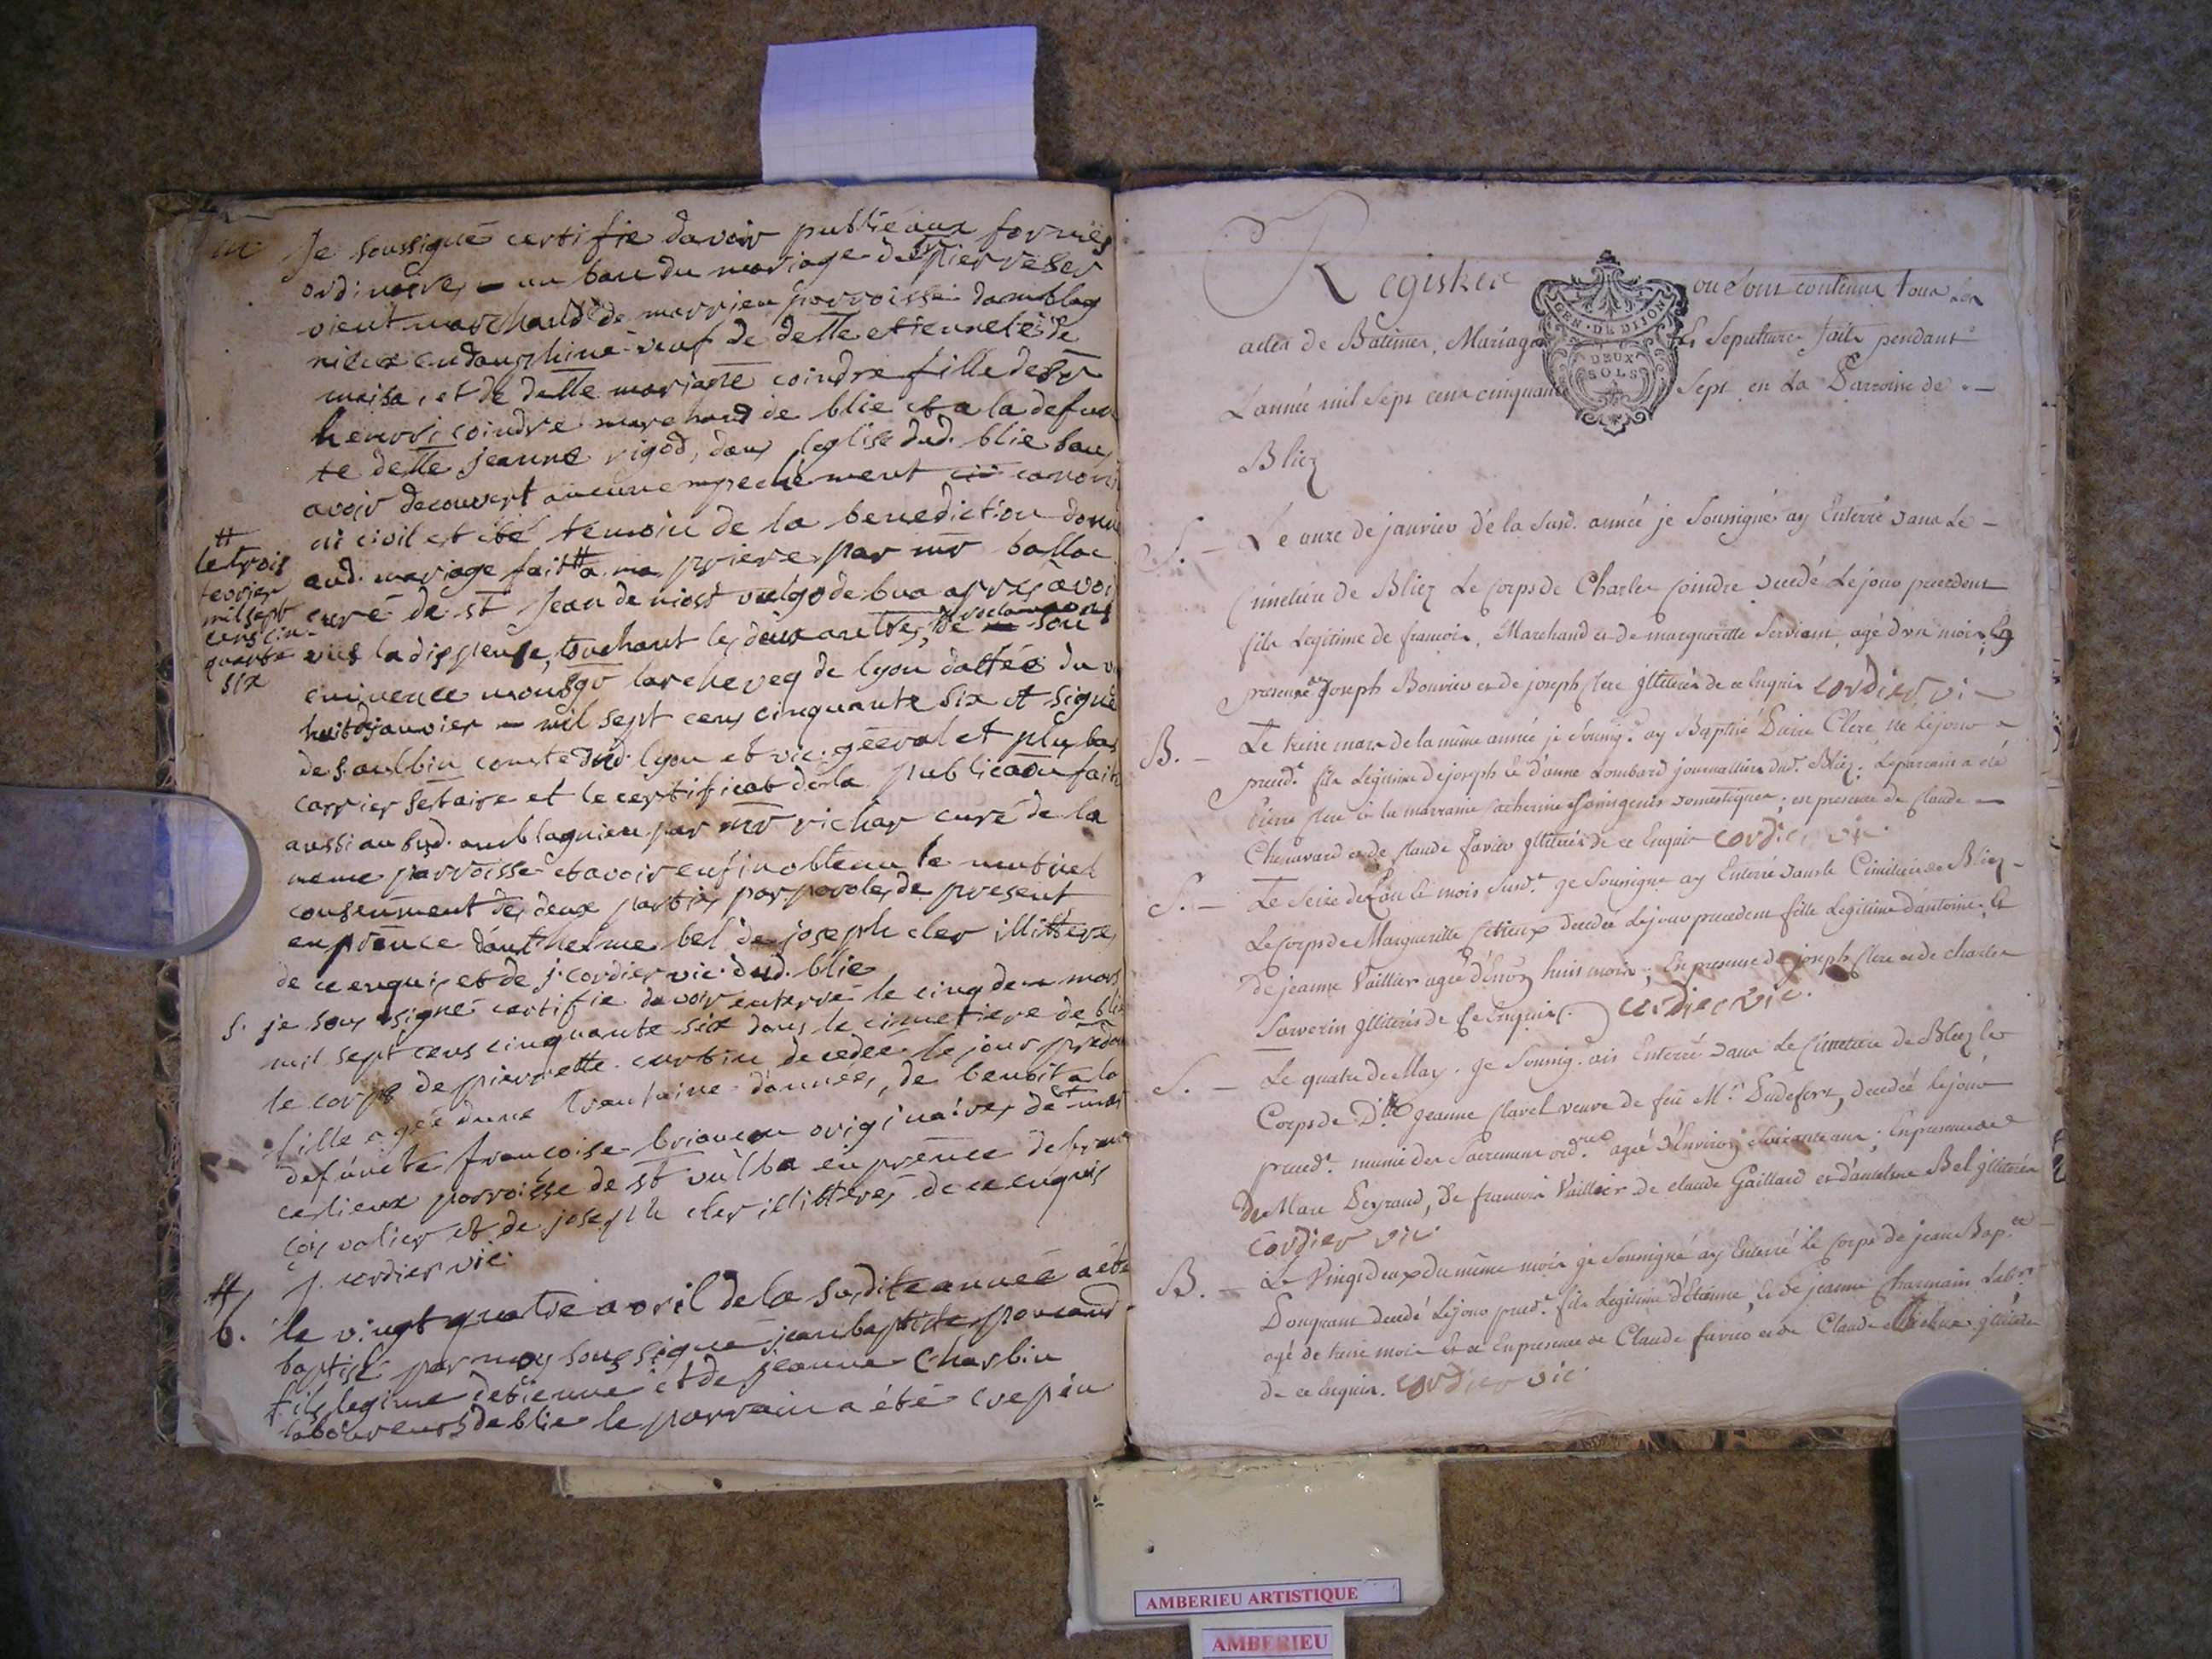 m
Je soussigné certifie davoir publié aux formes
ordinaires un ban du mariage du sr pierre ser
vient marchand de morrieu parroisse damblag
nieux en dauphiné veuf de delle etiennete
et de delle mariane coindre fille de sr
henori coindre marchand de blie et a la defun
te delle jeanne rigod, dans leglise dud. blie sans
avoir decouvert aucun empechement canoni
ni civil et été temoin de la benediction donné
aud. mariage fait # a ma priere par mr ballac
curé de st Jean de niost vulgo de bua apres avoir
eus la dispense, touchant les deux autres, proclamations de son
eminence monsgr larcheveq de lyon dattée du
huit janvier mil sept cens cinquante six et signé
de s. aulbin comte dud. lyon et vic. géeral et plus bas
carrier setaire et le certificat de la publicaon faite
aussi au sud. amblagnieu par mr richar curé de la
meme parroisse et avoir enfin obtenu le mutuel
consentment des deux parties par paroles de present
en prence danthelme bel de joseph cler illitteres
de ce enquis et de j. cordier vic. dud. blie
#
le trois
fevrier
mil sept
cens cin
quante
six
S. je sous signé certifie davoir enterré le cinq de mars
mil sept cens cinquante six dans le cimetiere de blie
le corps de pierrette curtin decedée le jour prédent
fille agée dune trentaine dannées, de benoit a la
defuncte francoise briancon originaires de
parroisse de st vulba en prence de fran
çois valier et de joseph cler illitteres de ce enquis
j. cordier vic.
#
b. le vingt quatre avril de la susdite année a été
baptisé par moy soussigné jean baptiste poncand
fils legime detienne et de jeanne Charbin
laboureurs de blie le parrain a été crepin
Registre où sont contenus tous les
actes de Batêmes, Mariages Et Sepultures faits pendant
L'année mil Sept cent cinquante Sept en La Parroisse de
Bliez
GEN. DE DIJON
DEUX
SOLS
S. - Le onze de janvier de la Susd. année je Soussigné ay Enterré dans Le
Cimetiére de Bliez Le Corps de Charles Coindre decedé Le jour precedent
fils Legitime de francois, Marchand et de marguerite Servient, agé d'un mois, En
presence de Joseph Bouvier et de joseph Clerc Illiterés de ce Enquis cordier vic
B. - Le treize mars de la même année je Soussig.é ay Baptisé Pierre Clerc né le jour
preced.t fils Legitime de joseph et d'anne Lombard journalliers dud. Bliez; Le parrain a été
Pierre Clerc et la marraine Catherine domestiques, en presence de Claude
Chenavard et de Claude favier Illiterés de ce Enquis cordier vic.
S. - Le Seize de L'an et mois Susd.t je Soussigné ay Enterré dans le Cimitiere de Bliez
Le Corps de Marguerite decedée Le jour precedent fille Legitime d'antoine, et
De jeanne Vaillier agée d'Environ huit mois; En presence de joseph Clerc et de charles
Sarverin Illiterés de ce Enquis. cordier vic.
S. - Le quatre de May. je Soussig. ais Enterré dans Le Cimetiere de Bliez le
Corps de D.lle jeanne Clavel veuve de feu M.r Dudefort, decedée le jour
preced.t munie des Sacremens ord.res agée d'Environ soixante ans; En presence
de Marc Peyraud, De francois Vaillier de claude Gaillard et d'antelme Bel Illiterés
cordier vic
B. - Le Vingt deux du même mois je Soussigné ay Enterré le Corps de jean Bap.te
decedé Le jour preced.t fils Legitime d'Etienne, et de jeanne
agé de treize mois Et ce En presence de Claude favier et de Claude illiterés
de ce Enquis. cordier vic.
AMBERIEU ARTISTIQUE
AMBERIEU